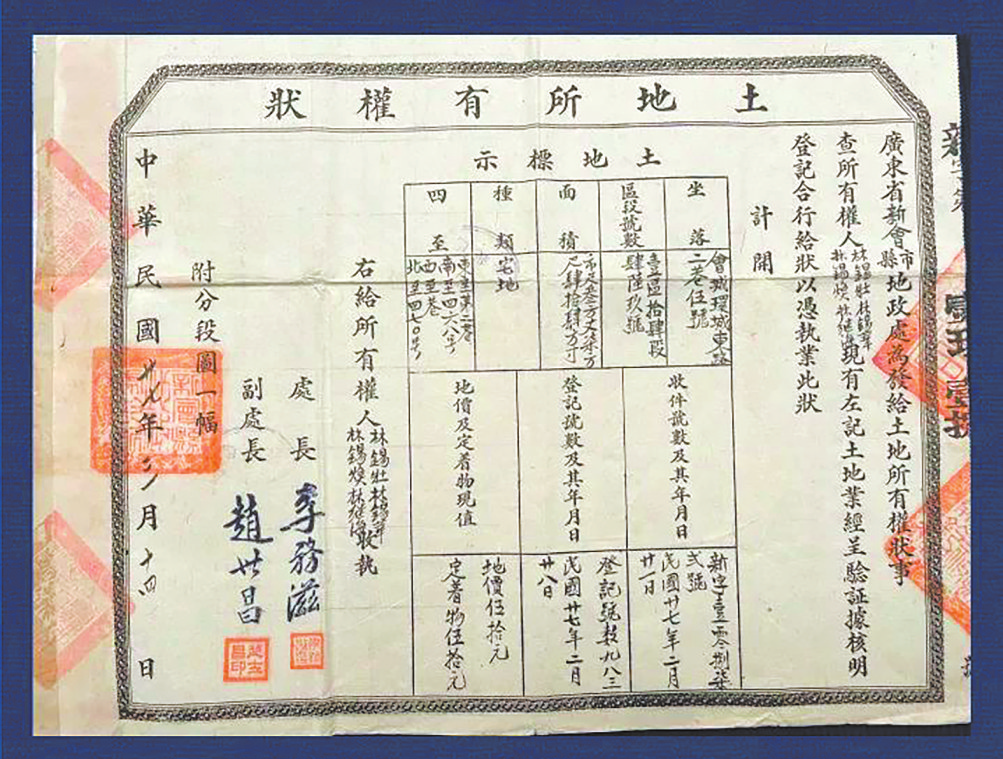 土地所有權狀
廣東省新會
市
縣
地政處為發給土地所有權狀事
查所有權人
林錫壯林錫華
林錫煥林維
現有左記土地業經呈驗証據核明
登記合行給狀以憑執業此狀
計開
土地標示
坐落
會城環城東路
二巷伍號
區段號數
壹區拾肆段
肆陸玖號
面積
叁方丈柒方
尺肆拾肆方寸
種類
宅地
四至
東至第二巷
南至四六八号
西至巷
北至四七〇号
收件號數及其年月日
新字壹零捌柒
弍號
民國廿七年二月
廿一日
登記號數及其年月日
登記號數九八三
民國廿七年二月
廿八日
地價及定着物現值
地價伍拾元
定着物伍拾元
右給所有權人
林錫壯林錫華
林錫煥林維
收執
處長
李務滋
副處長
趙世昌
附分段圖一幅
中華民國廿七年三月十四日